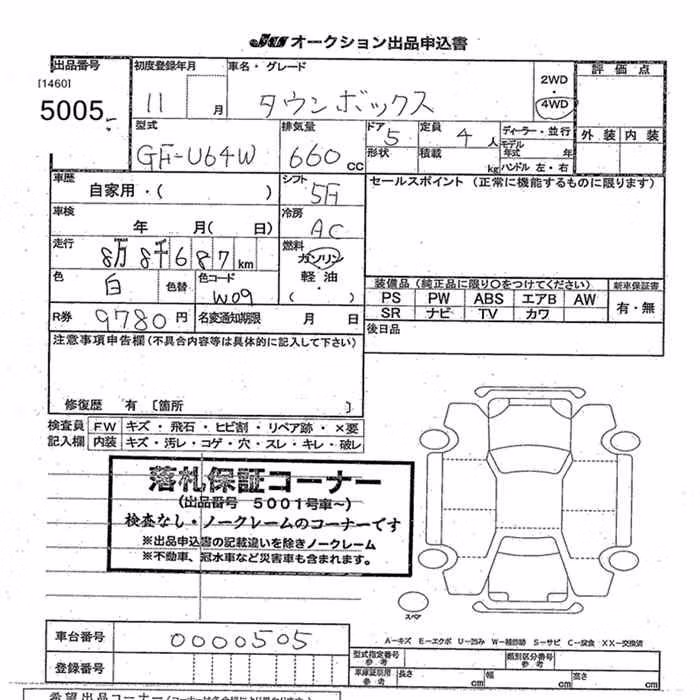 JU オークション出品申込書
出品番号 初度登録年月 車名・グレード 評価点
[1460] 2WD
5005 11 月 タウンボックス 4WD
型式 排気量 ドア 5 定員 4人 ディーラー・並行 外装 内装
GF-U64W 660cc 形状 積載 kg モデル年式 年
ハンドル 左・右
車歴 シフト セールスポイント (正常に機能するものに限ります)
自家用・( ) 5F
車検 冷房
年 月( 日) AC
走行 燃料
8万8千687km ガソリン
色 白 色替 色コード W09 軽油
・
( ) 装備品 (純正品に限り○をつけてください) 新車保証書
PS PW ABS エアB AW 有・無
SR ナビ TV カワ
R券 9780円 名変通知期限 月 日 後日品
注意事項申告欄 (不具合内容等は具体的に記入して下さい)
修復歴 有 [箇所 ]
検査員 FW キズ・飛石・ヒビ割・リペア跡・×要
記入欄 内装 キズ・汚レ・コゲ・穴・スレ・キレ・破レ
落札保証コーナー
(出品番号 5001号車~)
検査なし・ノークレームのコーナーです
※出品申込書の記載違いを除きノークレーム
※不動車、冠水車など災害車も含まれます。
スペア
車台番号 0000505 A-キズ E-エクボ U-凹み W-補修跡 S-サビ C-腐食 XX-交換済
型式指定番号 参考 類別区分番号 参考
登録番号 車庫証明用 参考 長さ cm 幅 cm 高さ cm
希望出品コーナー